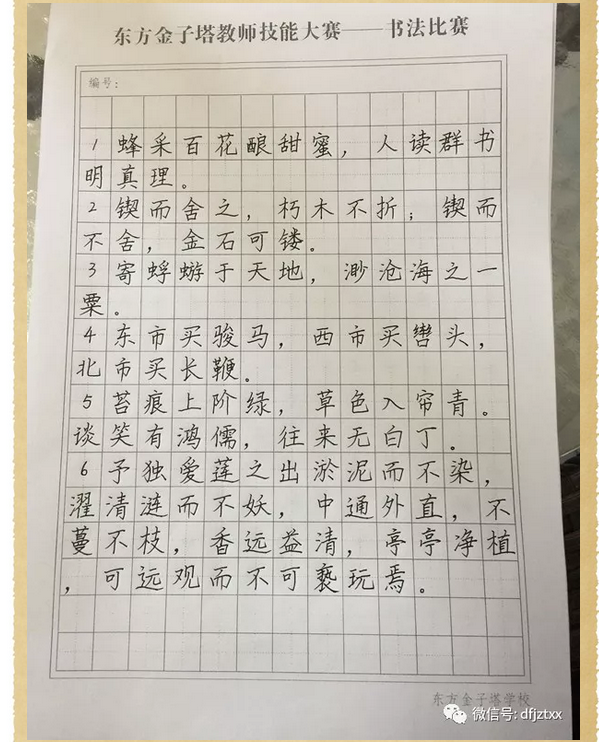 东方金子塔教师技能大赛——书法比赛
编号：
1 蜂采百花酿甜蜜，人读群书
明真理。
2 锲而舍之，朽木不折；锲而
不舍，金石可镂。
3 寄蜉蝣于天地，渺沧海之一
粟。
4 东市买骏马，西市买辔头，
北市买长鞭。
5 苔痕上阶绿，草色入帘青。
谈笑有鸿儒，往来无白丁。
6 予独爱莲之出淤泥而不染，
濯清涟而不妖，中通外直，不
蔓不枝，香远益清，亭亭净植
，可远观而不可亵玩焉。
东方金子塔学校
微信号: dfjztxx